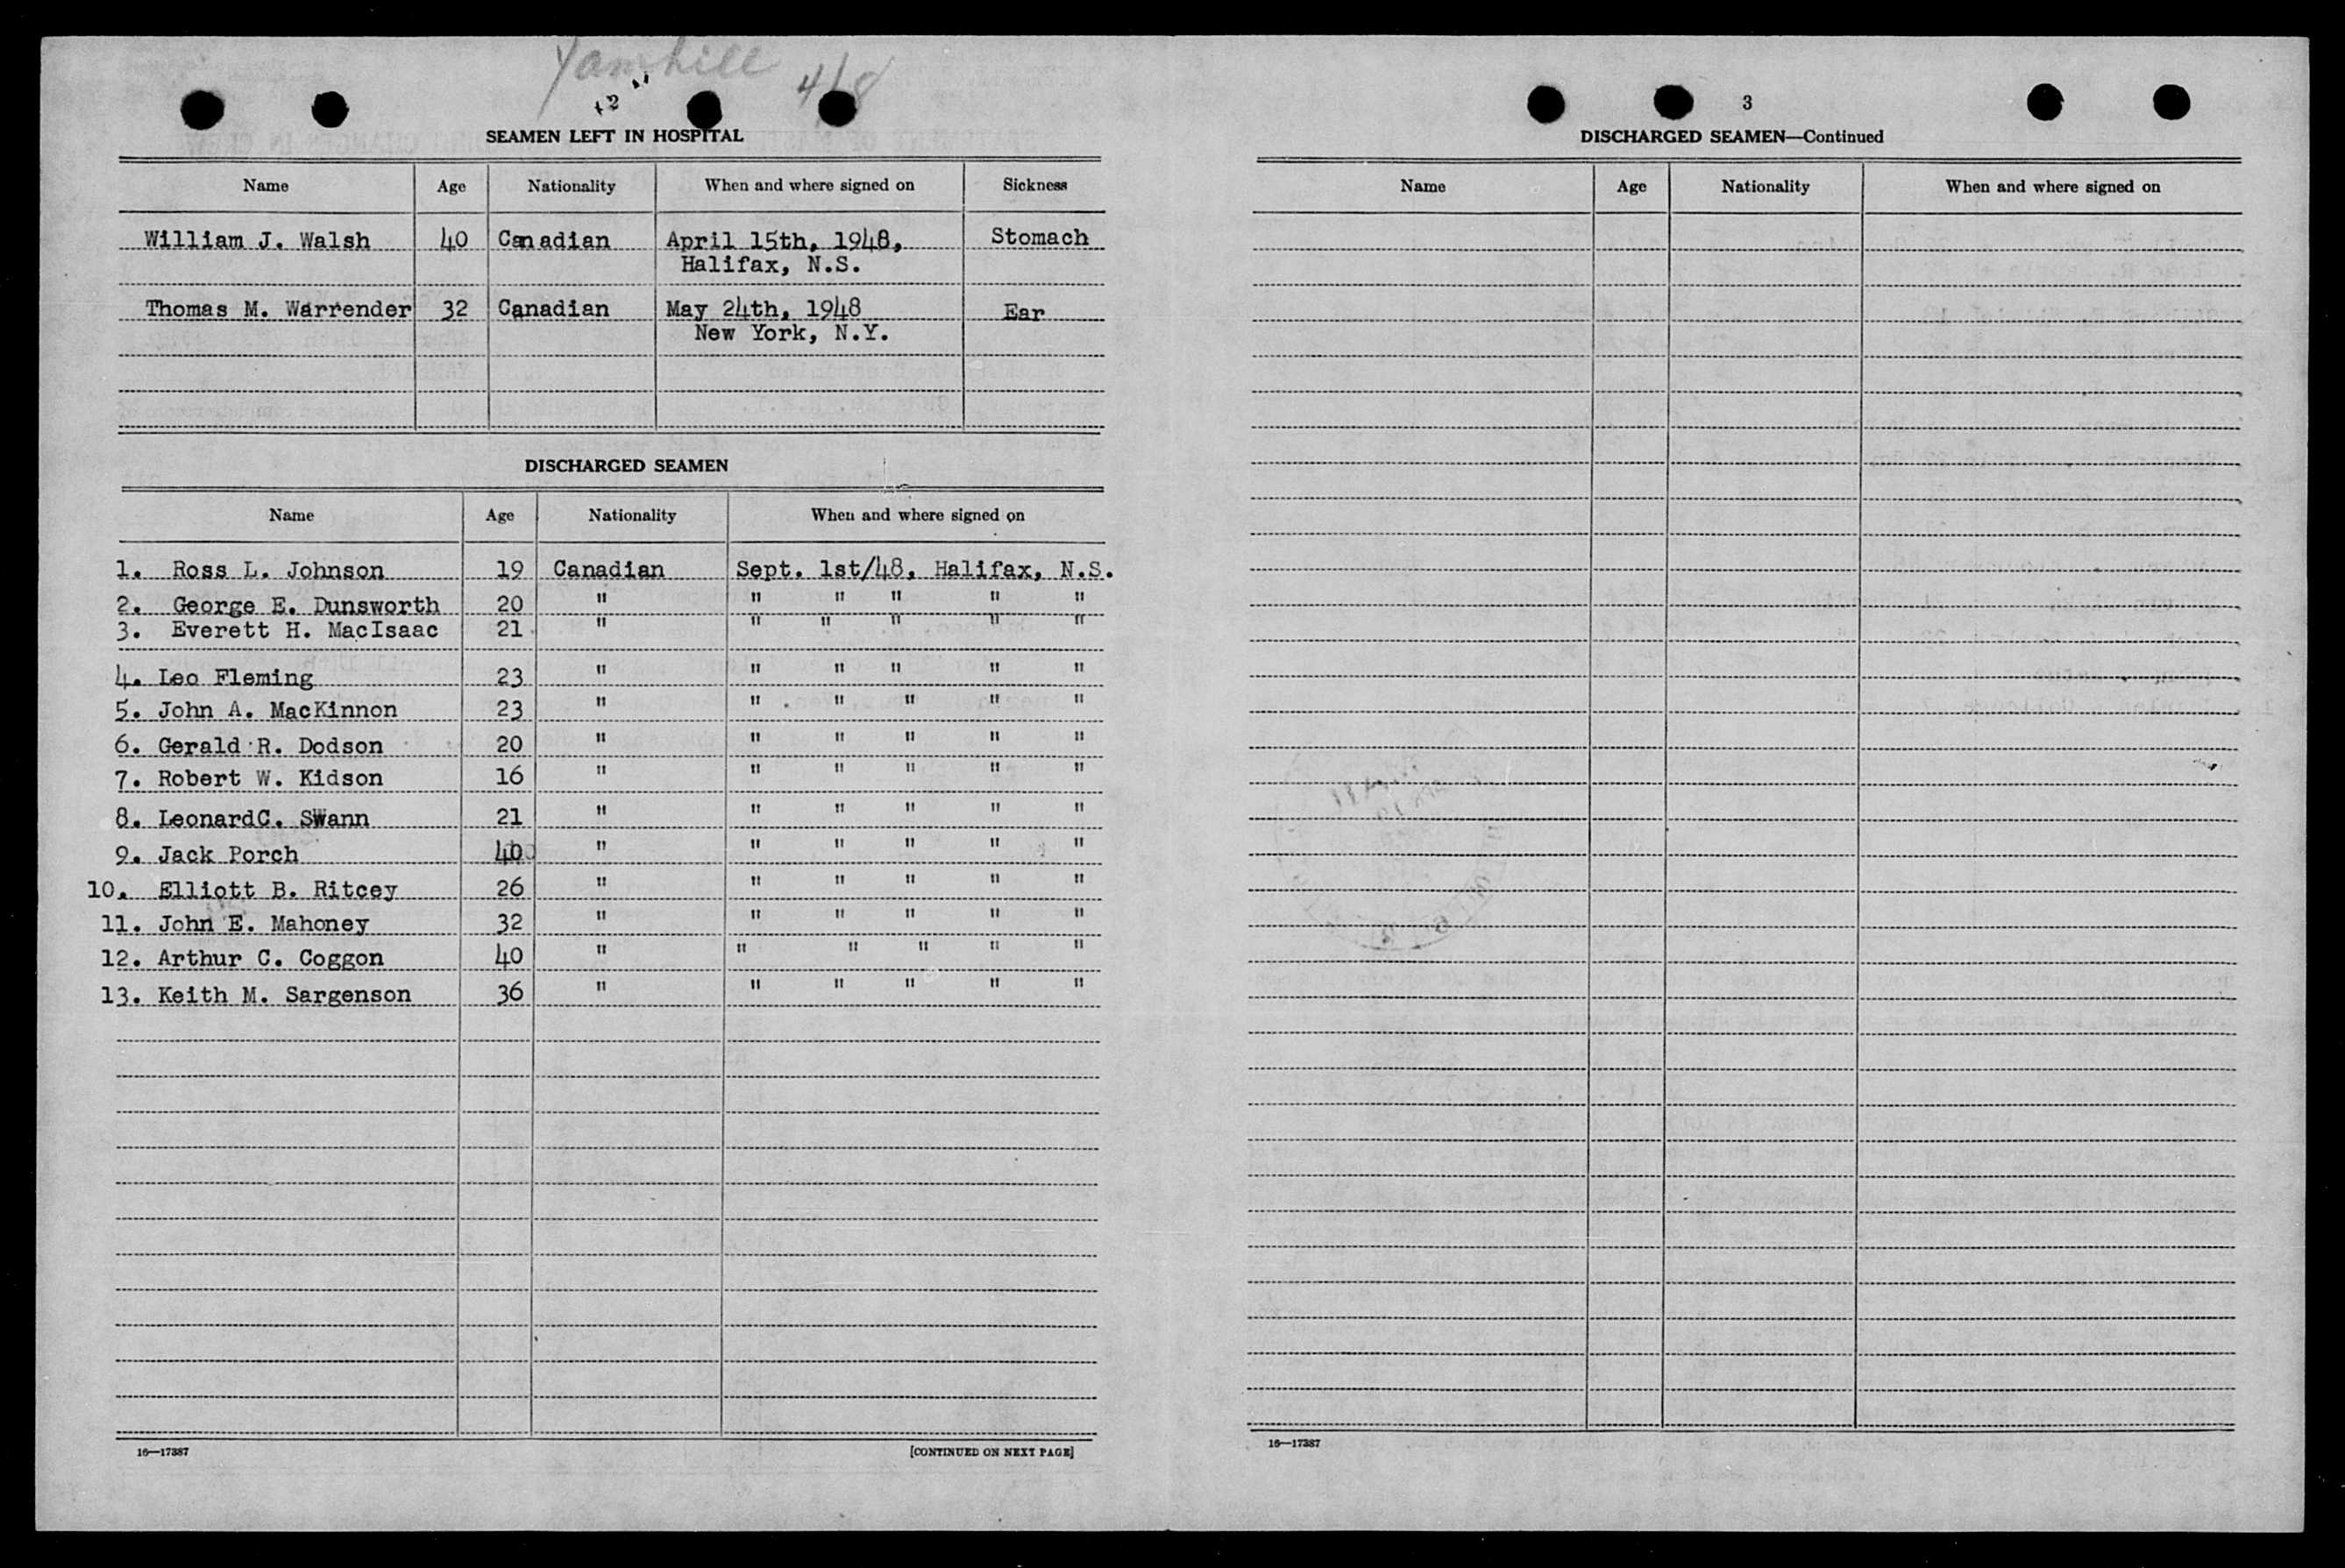 Yamhill 4/8
2
SEAMEN LEFT IN HOSPITAL
Name Age Nationality When and where signed on Sickness
William J. Walsh 40 Canadian April 15th, 1948, Stomach
Halifax, N.S.
Thomas M. Warrender 32 Canadian May 24th, 1948 Ear
New York, N.Y.
DISCHARGED SEAMEN
Name Age Nationality When and where signed on
1. Ross L. Johnson 19 Canadian Sept. 1st/48, Halifax, N.S.
2. George E. Dunsworth 20 " " " " " "
3. Everett H. MacIsaac 21 " " " " " "
4. Leo Fleming 23 " " " " " "
5. John A. MacKinnon 23 " " " " " "
6. Gerald R. Dodson 20 " " " " " "
7. Robert W. Kidson 16 " " " " " "
8. LeonardC. SWann 21 " " " " " "
9. Jack Porch 40 " " " " " "
10. Elliott B. Ritcey 26 " " " " " "
11. John E. Mahoney 32 " " " " " "
12. Arthur C. Coggon 40 " " " " " "
13. Keith M. Sargenson 36 " " " " " "
16—17387 [CONTINUED ON NEXT PAGE]
3
DISCHARGED SEAMEN—Continued
Name Age Nationality When and where signed on
16—17387